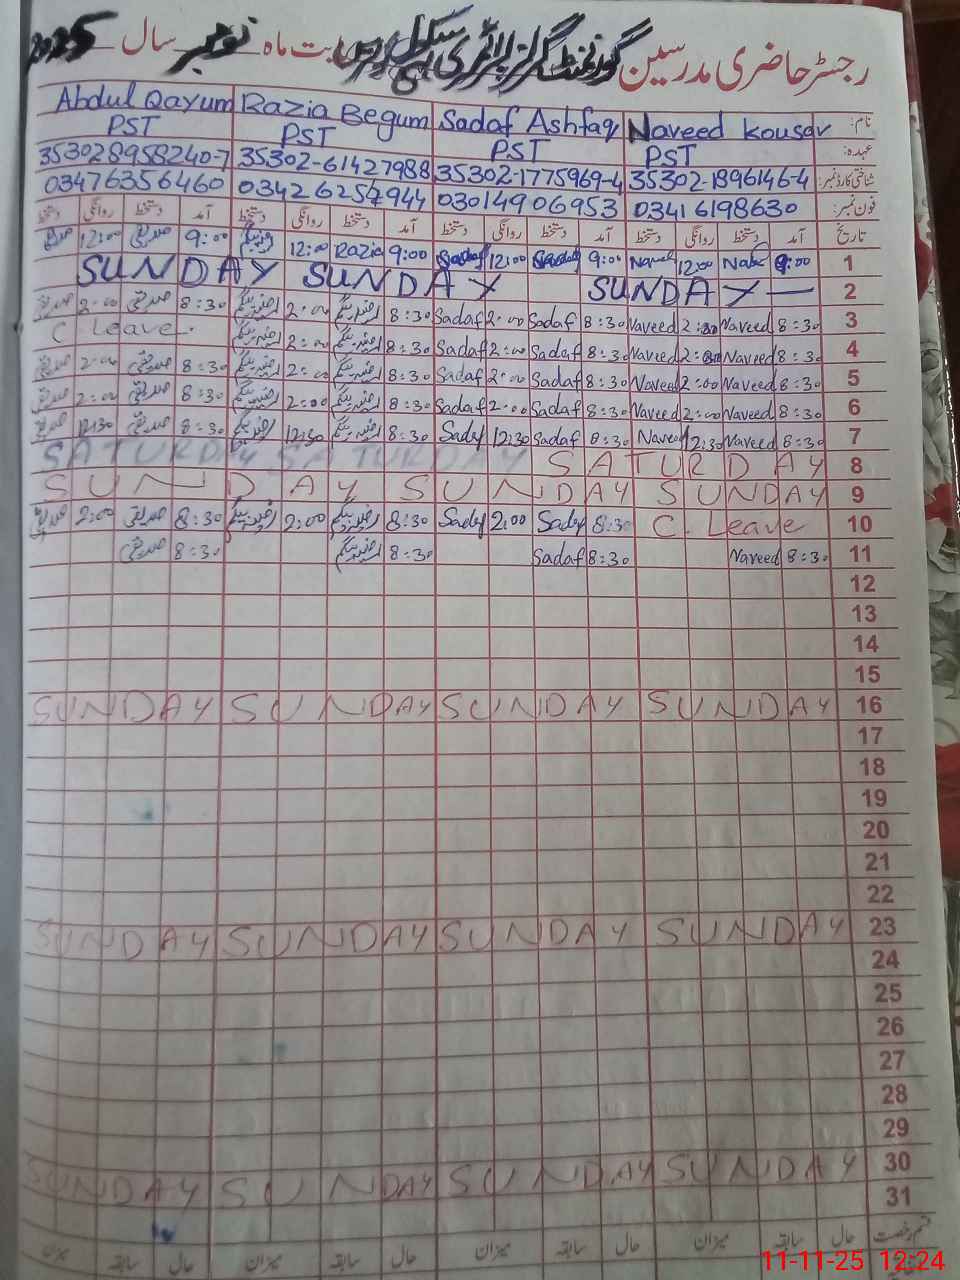 رجسٹر حاضری مدرسین گورنمنٹ گرلز پرائمری سکول بابت ماہ نومبر سال 2025
نام: Naveed Kousar Sadaf Ashfaq Razia Begum Abdul Qayum
عہدہ: PST PST PST PST
شناختی کارڈ نمبر: 35302-1896146-4 35302-1775969-4 35302-61427988 353028958240-7
فون نمبر: 03416198630 03014906953 03426257944 03476356460
تاریخ آمد دستخط روانگی دستخط آمد دستخط روانگی دستخط آمد دستخط روانگی دستخط آمد دستخط روانگی دستخط
12:00 9:00 12:00 Razia 9:00 Sadaf 12:00 Sadaf 9:00 12:00 9:00 1
SUNDAY SUNDAY SUNDAY 2
2:00 8:30 2:00 8:30 Sadaf 2:00 Sadaf 8:30 Naveed 2:00 Naveed 8:30 3
C. Leave 2:00 8:30 Sadaf 2:00 Sadaf 8:30 Naveed 2:00 Naveed 8:30 4
2:00 8:30 2:00 8:30 Sadaf 2:00 Sadaf 8:30 Naveed 2:00 Naveed 8:30 5
2:00 8:30 2:00 8:30 Sadaf 2:00 Sadaf 8:30 Naveed 2:00 Naveed 8:30 6
12:30 8:30 12:30 8:30 Sadaf 12:30 Sadaf 8:30 Naveed 12:30 Naveed 8:30 7
SATURDAY SATURDAY SATURDAY 8
SUNDAY SUNDAY SUNDAY 9
2:00 8:30 2:00 8:30 Sadaf 2:00 Sadaf 8:30 C. Leave 10
8:30 8:30 Sadaf 8:30 Naveed 8:30 11
12
13
14
15
SUNDAY SUNDAY SUNDAY SUNDAY 16
17
18
19
20
21
22
SUNDAY SUNDAY SUNDAY SUNDAY 23
24
25
26
27
28
29
SUNDAY SUNDAY SUNDAY SUNDAY 30
31
قسم رخصت حال سابقہ میزان حال سابقہ میزان حال سابقہ میزان حال سابقہ میزان
11-11-25 12:24